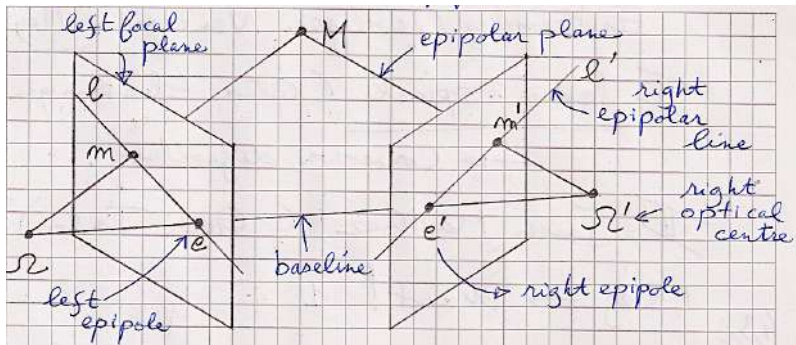 left focal
plane
M
epipolar plane
l
l'
right
epipolar
line
m
m'
e
e'
Ω
Ω'
right
optical
centre
baseline
left
epipole
right epipole